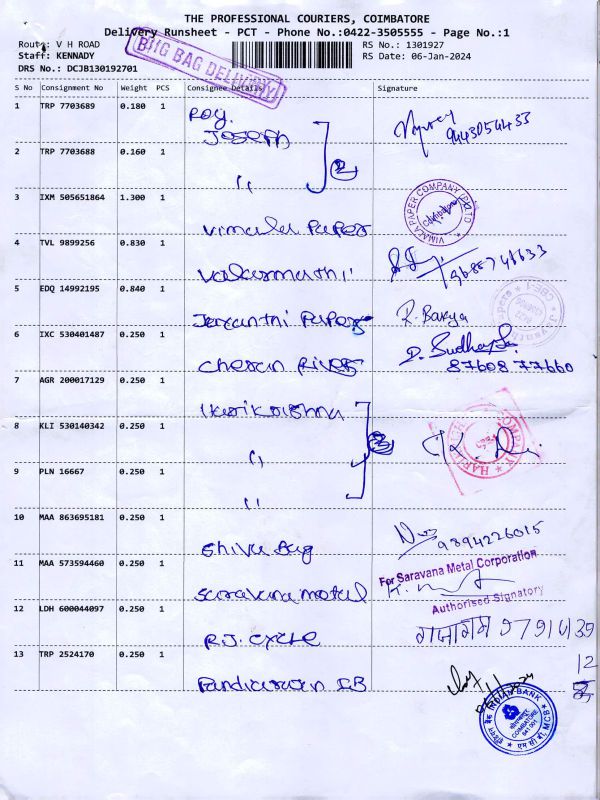 THE PROFESSIONAL COURIERS, COIMBATORE
Delivery Runsheet - PCT - Phone No.:0422-3505555 - Page No.:1
Route: V H ROAD RS No.: 1301927
Staff: KENNADY RS Date: 06-Jan-2024
DRS No.: DCJB130192701
BIG BAG DELIVERY
S No Consignment No Weight PCS Consignee Details Signature
1 TRP 7703689 0.180 1 Roy.
Joseph 9443054433
2 TRP 7703688 0.160 1
" 2
3 IXM 505651864 1.300 1
Vimala Paper VIMALA PAPER COMPANY (P) LTD
4 TVL 9899256 0.830 1
Valarmathi 9688746633
5 EDQ 14992195 0.840 1
Jayanthi Papers R. Barya
6 IXC 530401487 0.250 1
Cheran River 87608 77660
7 AGR 200017129 0.250 1
Harikrishna
8 KLI 530140342 0.250 1
"
9 PLN 16667 0.250 1
"
10 MAA 863695181 0.250 1
Shiva Bag 9894226015
11 MAA 573594460 0.250 1 For Saravana Metal Corporation
Saravana metal Authorised Signatory
12 LDH 600044097 0.250 1
R.J. cycle
13 TRP 2524170 0.250 1 12
Pandiaraan IB
INDIAN BANK
COIMBATORE
641 001